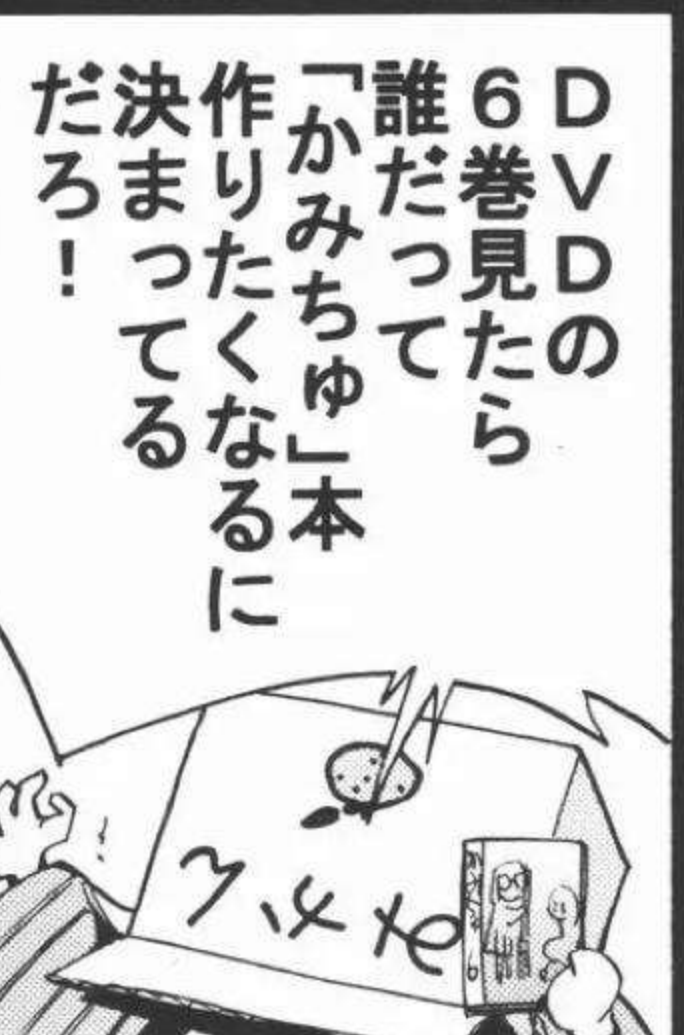 DVDの
6巻見たら
誰だって
「かみちゅ」本
作りたくなるに
決まってる
だろ！